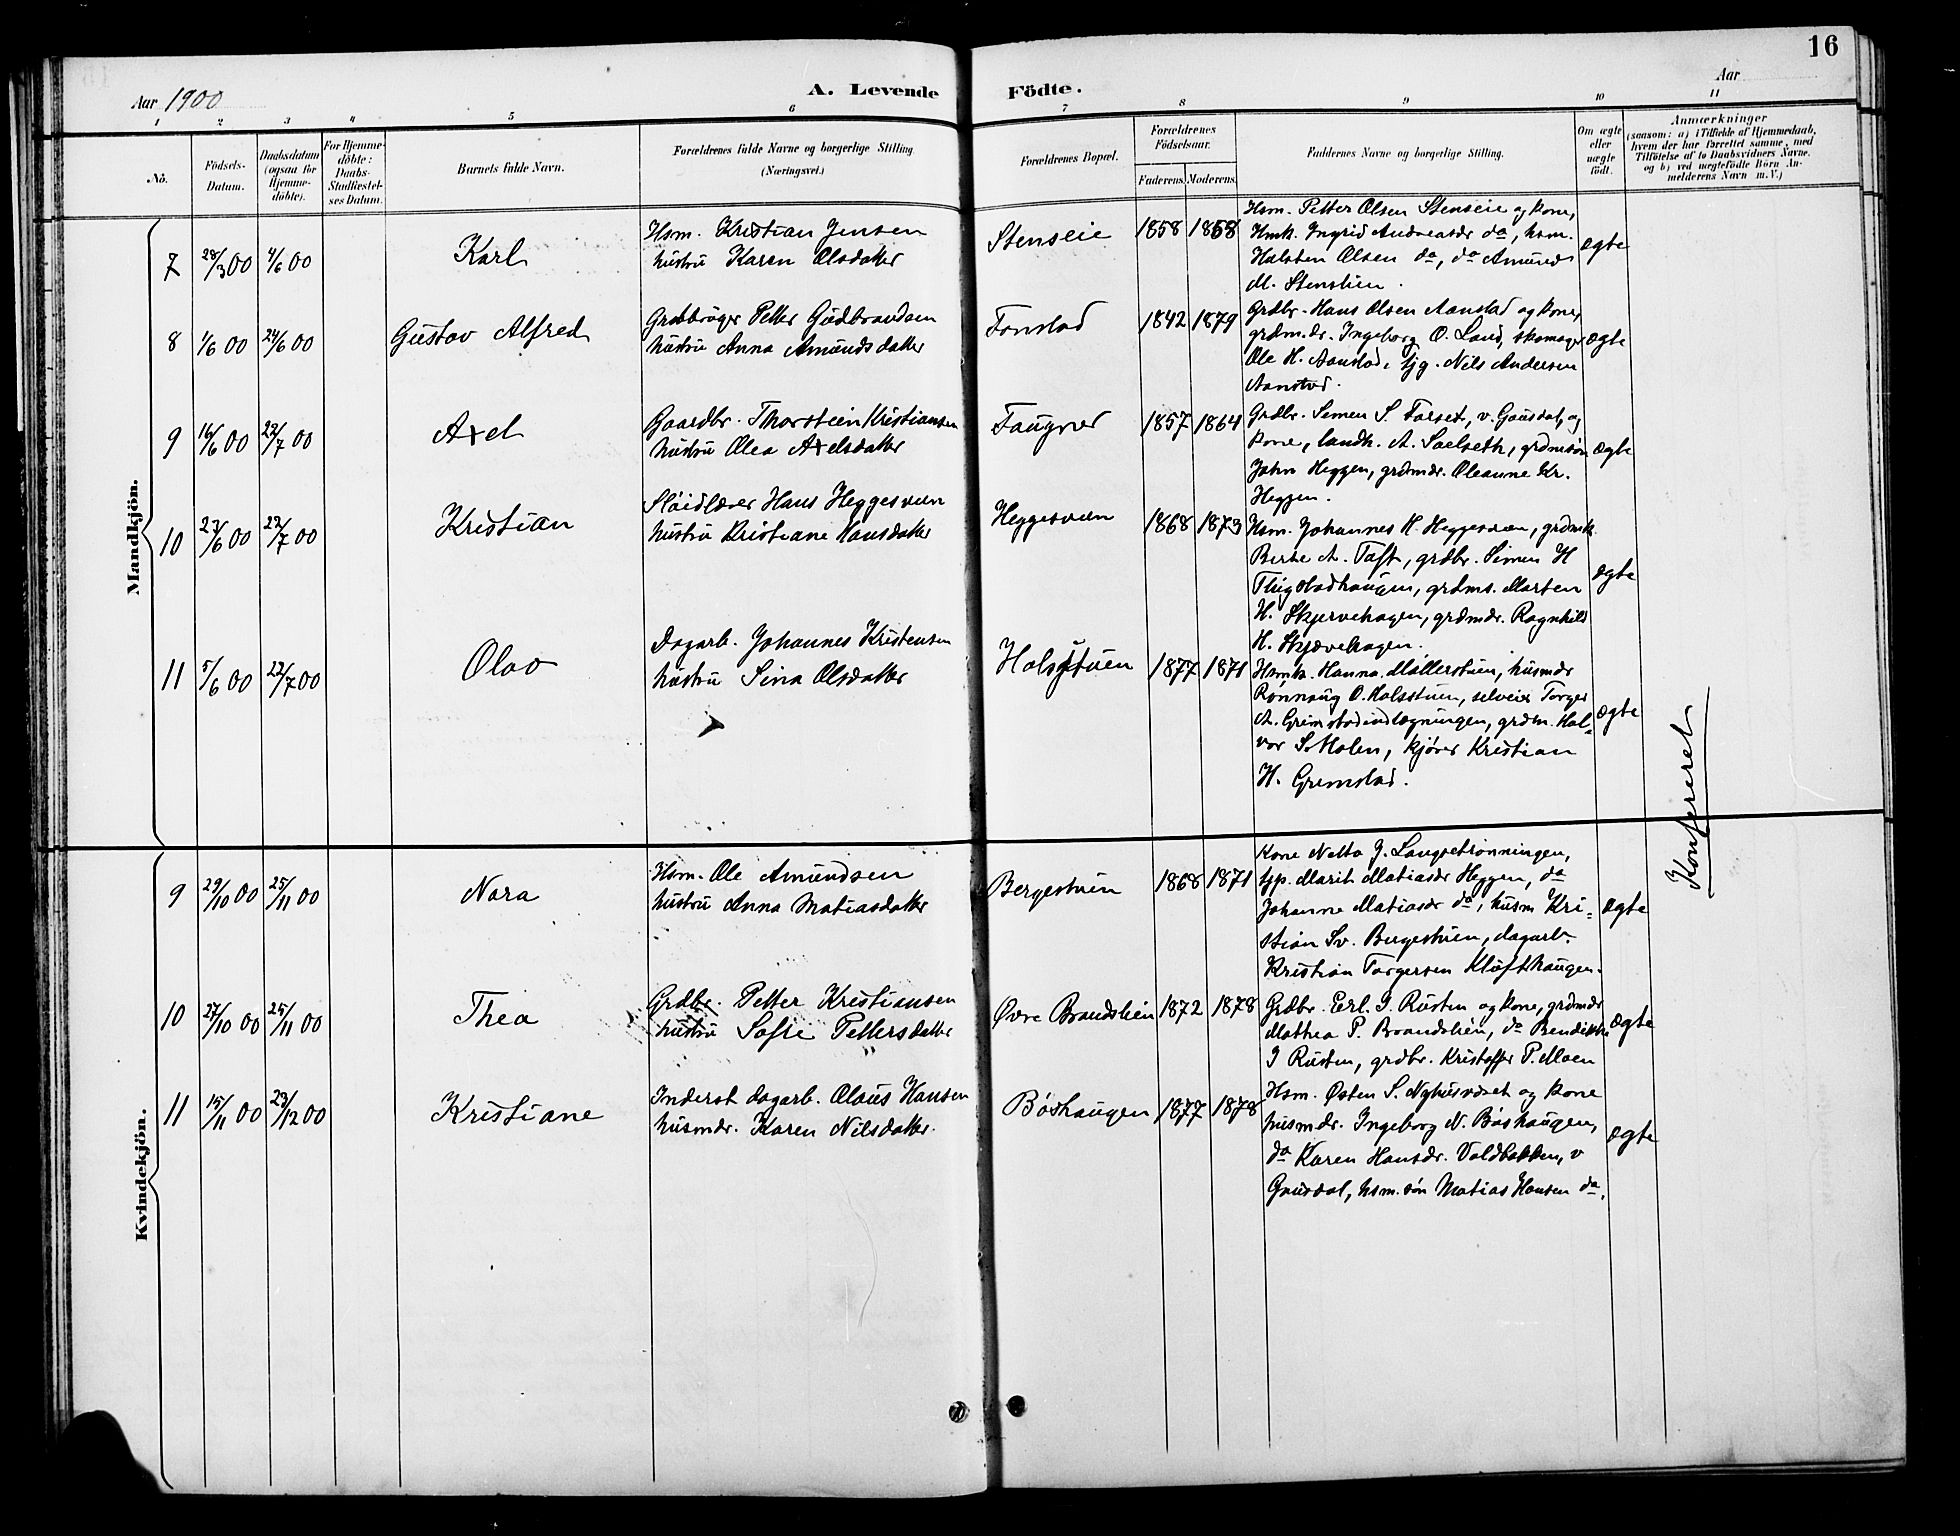 16
Aar 1900
A. Levende Födte.
Aar
1 2 3 4 5 6 7 8 9 10 11
No.
Födsels-Datum.
Daabsdatum (ogsaa for Hjemme-döbte).
For Hjemme-döbte: Daabs-Stadfæstel-ses Datum.
Barnets fulde Navn.
Forældrenes fulde Navne og borgerlige Stilling. (Næringsvei.)
Forældrenes Bopæl.
Forældrenes Födselsaar.
Faderens. Moderens.
Faddernes Navne og borgerlige Stilling.
Om ægte eller uægte födt.
Anmærkninger
(saasom: a) i Tilfælde af Hjemmedaab,
hvem der har forrettet samme, med
Tilföielse af to Daabsvidners Navne,
og b) ved uægtefödte Börn An-
melderens Navn m. V.)
Mandkjön.
7 28/3 00 4/6 00 Karl
Hsm. Kristian Jensen
hustru Karen Olsdatter
Stenseie 1858 1858
Hsm. Petter Olsen Stenseie og kone,
Hmk. Ingrid Andreasdr do, hsm.
Halsten Olsen do, do Amund
M. Stenslien.
ægte
8 1/6 00 24/6 00 Gustav Alfred
Grdbrüger Petter Gudbrandsen
hustru Anna Amundsdatter
Fonstad 1842 1879
Grdbr. Hans Olsen Aanstad og kone,
grdm.dr. Ingeborg O. Land, skomager
Ole H. Aanstad, tjg. Nils Andersen
Aanstad.
ægte
9 16/6 00 22/7 00 Axel
Gaardbr. Thorstein Kristiansen
hustru Olea Axelsdatter
Faugner 1857 1864
Grdbr. Semen S. Forset, v. Gausdal, og
kone, landh. A. Saelseth, grdmsön
John Heggen, grdmdr. Oleanne Kr.
Heggen.
ægte
10 23/6 00 22/7 00 Kristian
Slöidlærer Hans Heggesveen
hustru Kristiane Hansdatter
Heggesveen 1868 1873
Hsm. Johannes H. Heggesveen, grdmk.
Berte A. Toft, grdbr. Simen H
Thigstadhaugen, grdms. Marten
H. Skjervehagen, grdmdr. Ragnhild
H. Skjævehagen.
ægte
11 5/6 00 22/7 00 Olav
Dagarb. Johannes Kristensen
hustru Sina Olsdatter
Halsstuen 1877 1871
Hsmk. Hanna Möllerstuen, husmdr
Rønnaug O. Halsstuen, selveier Torger
A. Grimstadindlægningen, grdm. Hal-
vor S. Molen, kjörer Kristian
H. Grimstad.
ægte
Konfereret
Kvindekjön.
9 29/10 00 25/11 00 Nora
Hsm. Ole Amundsen
hustru Anna Matiasdatter
Bergestuen 1868 1871
Kone Netta J. Langsetrønningen,
tjp. Marit Matiasdr Heggen, do
Johanne Matiasdr do, husm Kri-
stian Sv. Bergestuen, dagarb.
Kristian Torgersen Kløfthaugen.
ægte
10 27/10 00 25/11 00 Thea
Grdbr. Petter Kristiansen
hustru Sofie Pettersdatter
Øvre Brandslien 1872 1878
Grdbr. Erl. I. Rusten og kone, grdmdr
Mathea P. Brandslien, do Bendikte
I Rusten, grdbr. Kristoffer P. Moen
ægte
11 15/11 00 23/12 00 Kristiane
Inderst dagarb. Olaus Hansen
husmdr. Karen Nilsdatter.
Böshaugen 1877 1878
Hsm. Østen S. Nyhusvæet og kone
husmdr. Ingeborg N. Böshaugen,
do Karen Hansdr. Voldbakken, v
Gausdal, hsm. sön Matias Hansen do.
ægte